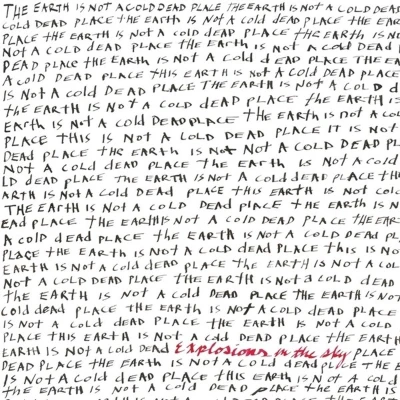 THE EARTH IS NOT A COLD DEAD PLACE THE EARTH IS NOT A COLD DEAD
COLD DEAD PLACE THE EARTH IS NOT A COLD DEAD PLACE THE EAR
PLACE THE EARTH IS NOT A COLD DEAD PLACE THE EARTH IS NO
NOT A COLD DEAD PLACE THE EARTH IS NOT A COLD DEAD
DEAD PLACE THE EARTH IS NOT A COLD DEAD PLACE THE EA
A COLD DEAD PLACE THIS EARTH IS NOT A COLD DEAD PLACE
IS NOT A COLD DEAD PLACE THE EARTH IS NOT A COLD D
THE EARTH IS NOT A COLD DEAD PLACE THE EARTH IS
EARTH IS NOT A COLD DEAD PLACE THE EARTH IS NOT A COL
PLACE THIS IS NOT A COLD DEAD PLACE IT IS NOT
DEAD PLACE THE EARTH IS NOT A COLD DEAD PL
NOT A COLD DEAD PLACE THE EARTH IS NOT A COLD
LD DEAD PLACE THE EARTH IS NOT A COLD DEAD PLACE TH
ARTH IS NOT A COLD DEAD PLACE THIS EARTH IS NOT COL
THE EARTH IS NOT A COLD DEAD PLACE THE EARTH IS N
EAD PLACE THE EARTH IS NOT A COLD DEAD PLACE THE EAR
A COLD DEAD PLACE THE EARTH IS NOT A COLD DEAD PL
PLACE THE EARTH IS NOT A COLD DEAD PLACE THIS IS NO
EARTH IS NOT A COLD DEAD PLACE THE EARTH IS NOT A CO
NOT A COLD DEAD PLACE THE EARTH IS NOT A COLD DEAD
THE EARTH IS NOT A COLD DEAD PLACE THE EARTH IS NOT
COLD DEAD PLACE THE EARTH IS NOT A COLD DEAD PLACE
IS NOT A COLD DEAD PLACE THE EARTH IS NOT A COLD
PLACE THIS EARTH IS NOT A COLD DEAD PLACE THE EARTH
EARTH IS NOT A COLD DEAD Explosions in the sky PLACE
DEAD PLACE THE EARTH IS NOT A COLD DEAD PLACE THE E
IS NOT A COLD DEAD PLACE THIS EARTH IS NOT A COLD
THE EARTH IS NOT A COLD DEAD PLACE THE EARTH IS